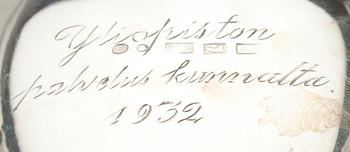 Yliopiston
palvelus kunnalta.
1932